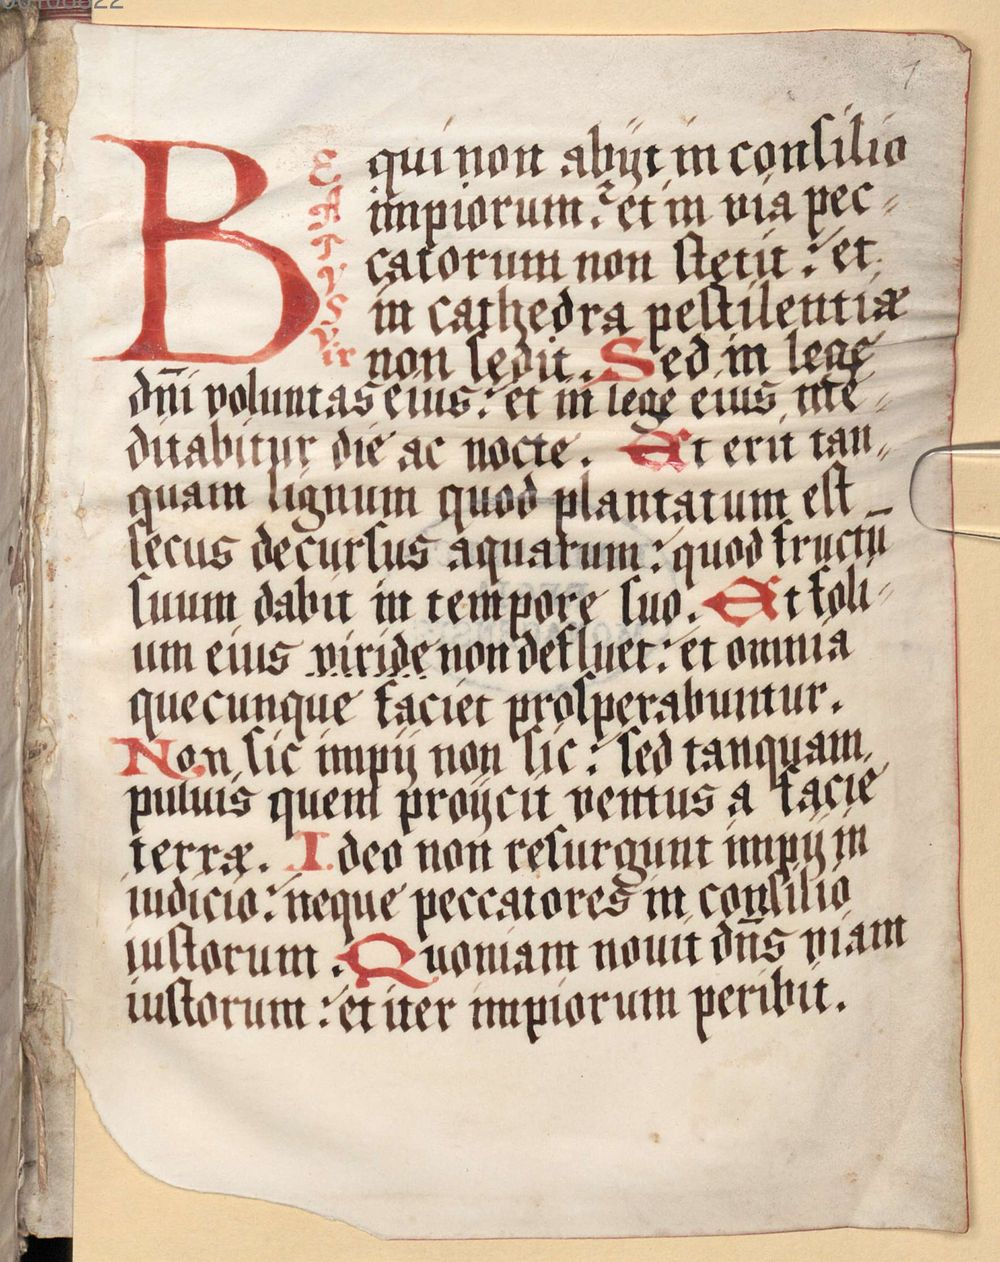 BEATVS vir qui non abijt in consilio
impiorum: et in via pec-
catorum non stetit: et
in cathedra pestilentiæ
non sedit. Sed in lege
dñi voluntas eius: et in lege eius me-
ditabitur die ac nocte. Et erit tan-
quam lignum quod plantatum est
secus decursus aquarum: quod fructū
suum dabit in tempore suo. Et foli-
um eius viride non defluet: et omnia
quecunque faciet prosperabuntur.
Non sic impij non sic: sed tanquam
puluis quem proijcit ventus a facie
terræ. Ideo non resurgunt impij in
iudicio: neque peccatores in consilio
iustorum. Quoniam nouit dñs viam
iustorum: et iter impiorum peribit.